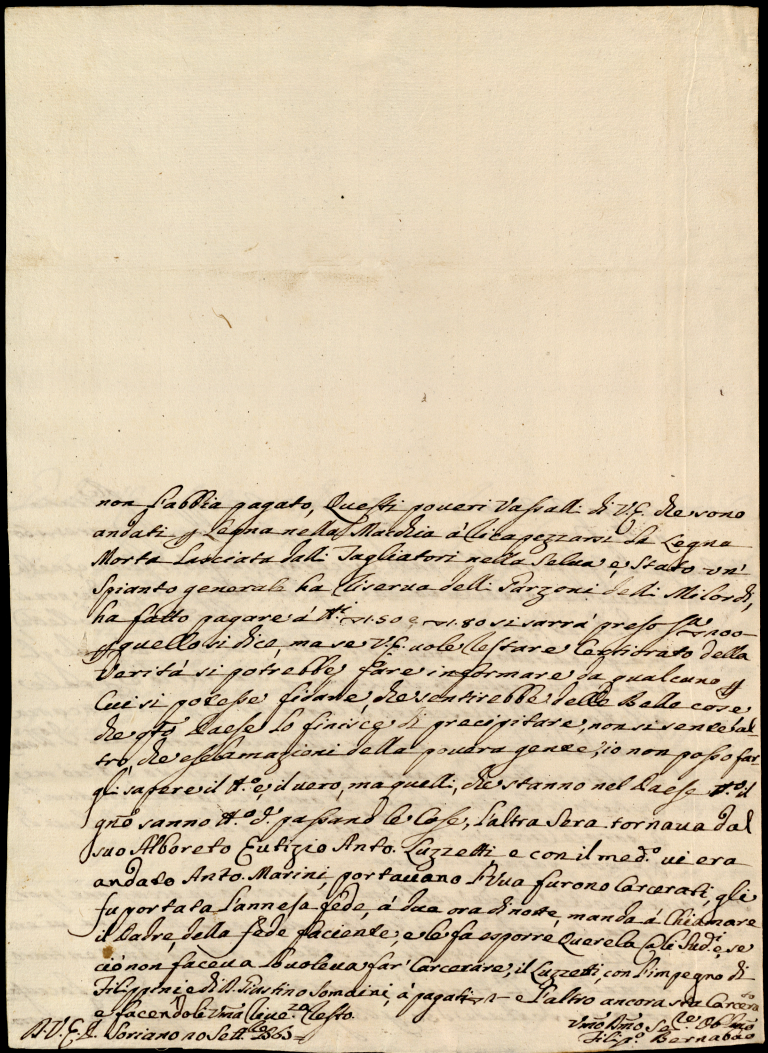 non l'abbia pagato, Questi poueri Vassalli di V.E. che sono
andati p Legna nella Macchia á Scapezzarsi la Legna
Morta Lasciata dalli Tagliatori nella Selua é, Stato un'
Spianto generale ha riserua delli Garzoni delli Milordi,
ha fatto pagare á 1:50 e 1:80 si sarrá preso 100
p quello si dice, ma se V.E. uole restare Cerziorato della
Veritá si potrebbe fare informare da qualcuno p
Cui si potesse fidare, che sentirebbe delle Belle cose
che qto Paese lo finisce di precipitare, non si sente al
tro, che esclamazioni della pouera gente, io non posso far
gli sapere il tto é, il uero, ma quelli, che stanno nel Paese tto il
gno sanno tto passano le Cose, L'altra Sera tornaua dal
suo Alboreto Eutizio Anto. Luzzetti, e con il medo ui era
andato Anto. Marini, portauano l'Vua furono Carcerati, gli
fu portata L'annesa fede, á due ora di notte, manda á Chiamare
il Padre, della fede faciente, e le fa esporre Querela se
ció non faceua uoleua far' Carcerare, il Luzzetti, con l'impegno di
Filippini e di Giustino Somaini, á pagati 1 e l'altro ancora sta Carcero
e facendole Vma riueza resto.
D.V.E. Soriano 20 Sette
Vmo Dmo Se Obmo
Filipo Bernabao